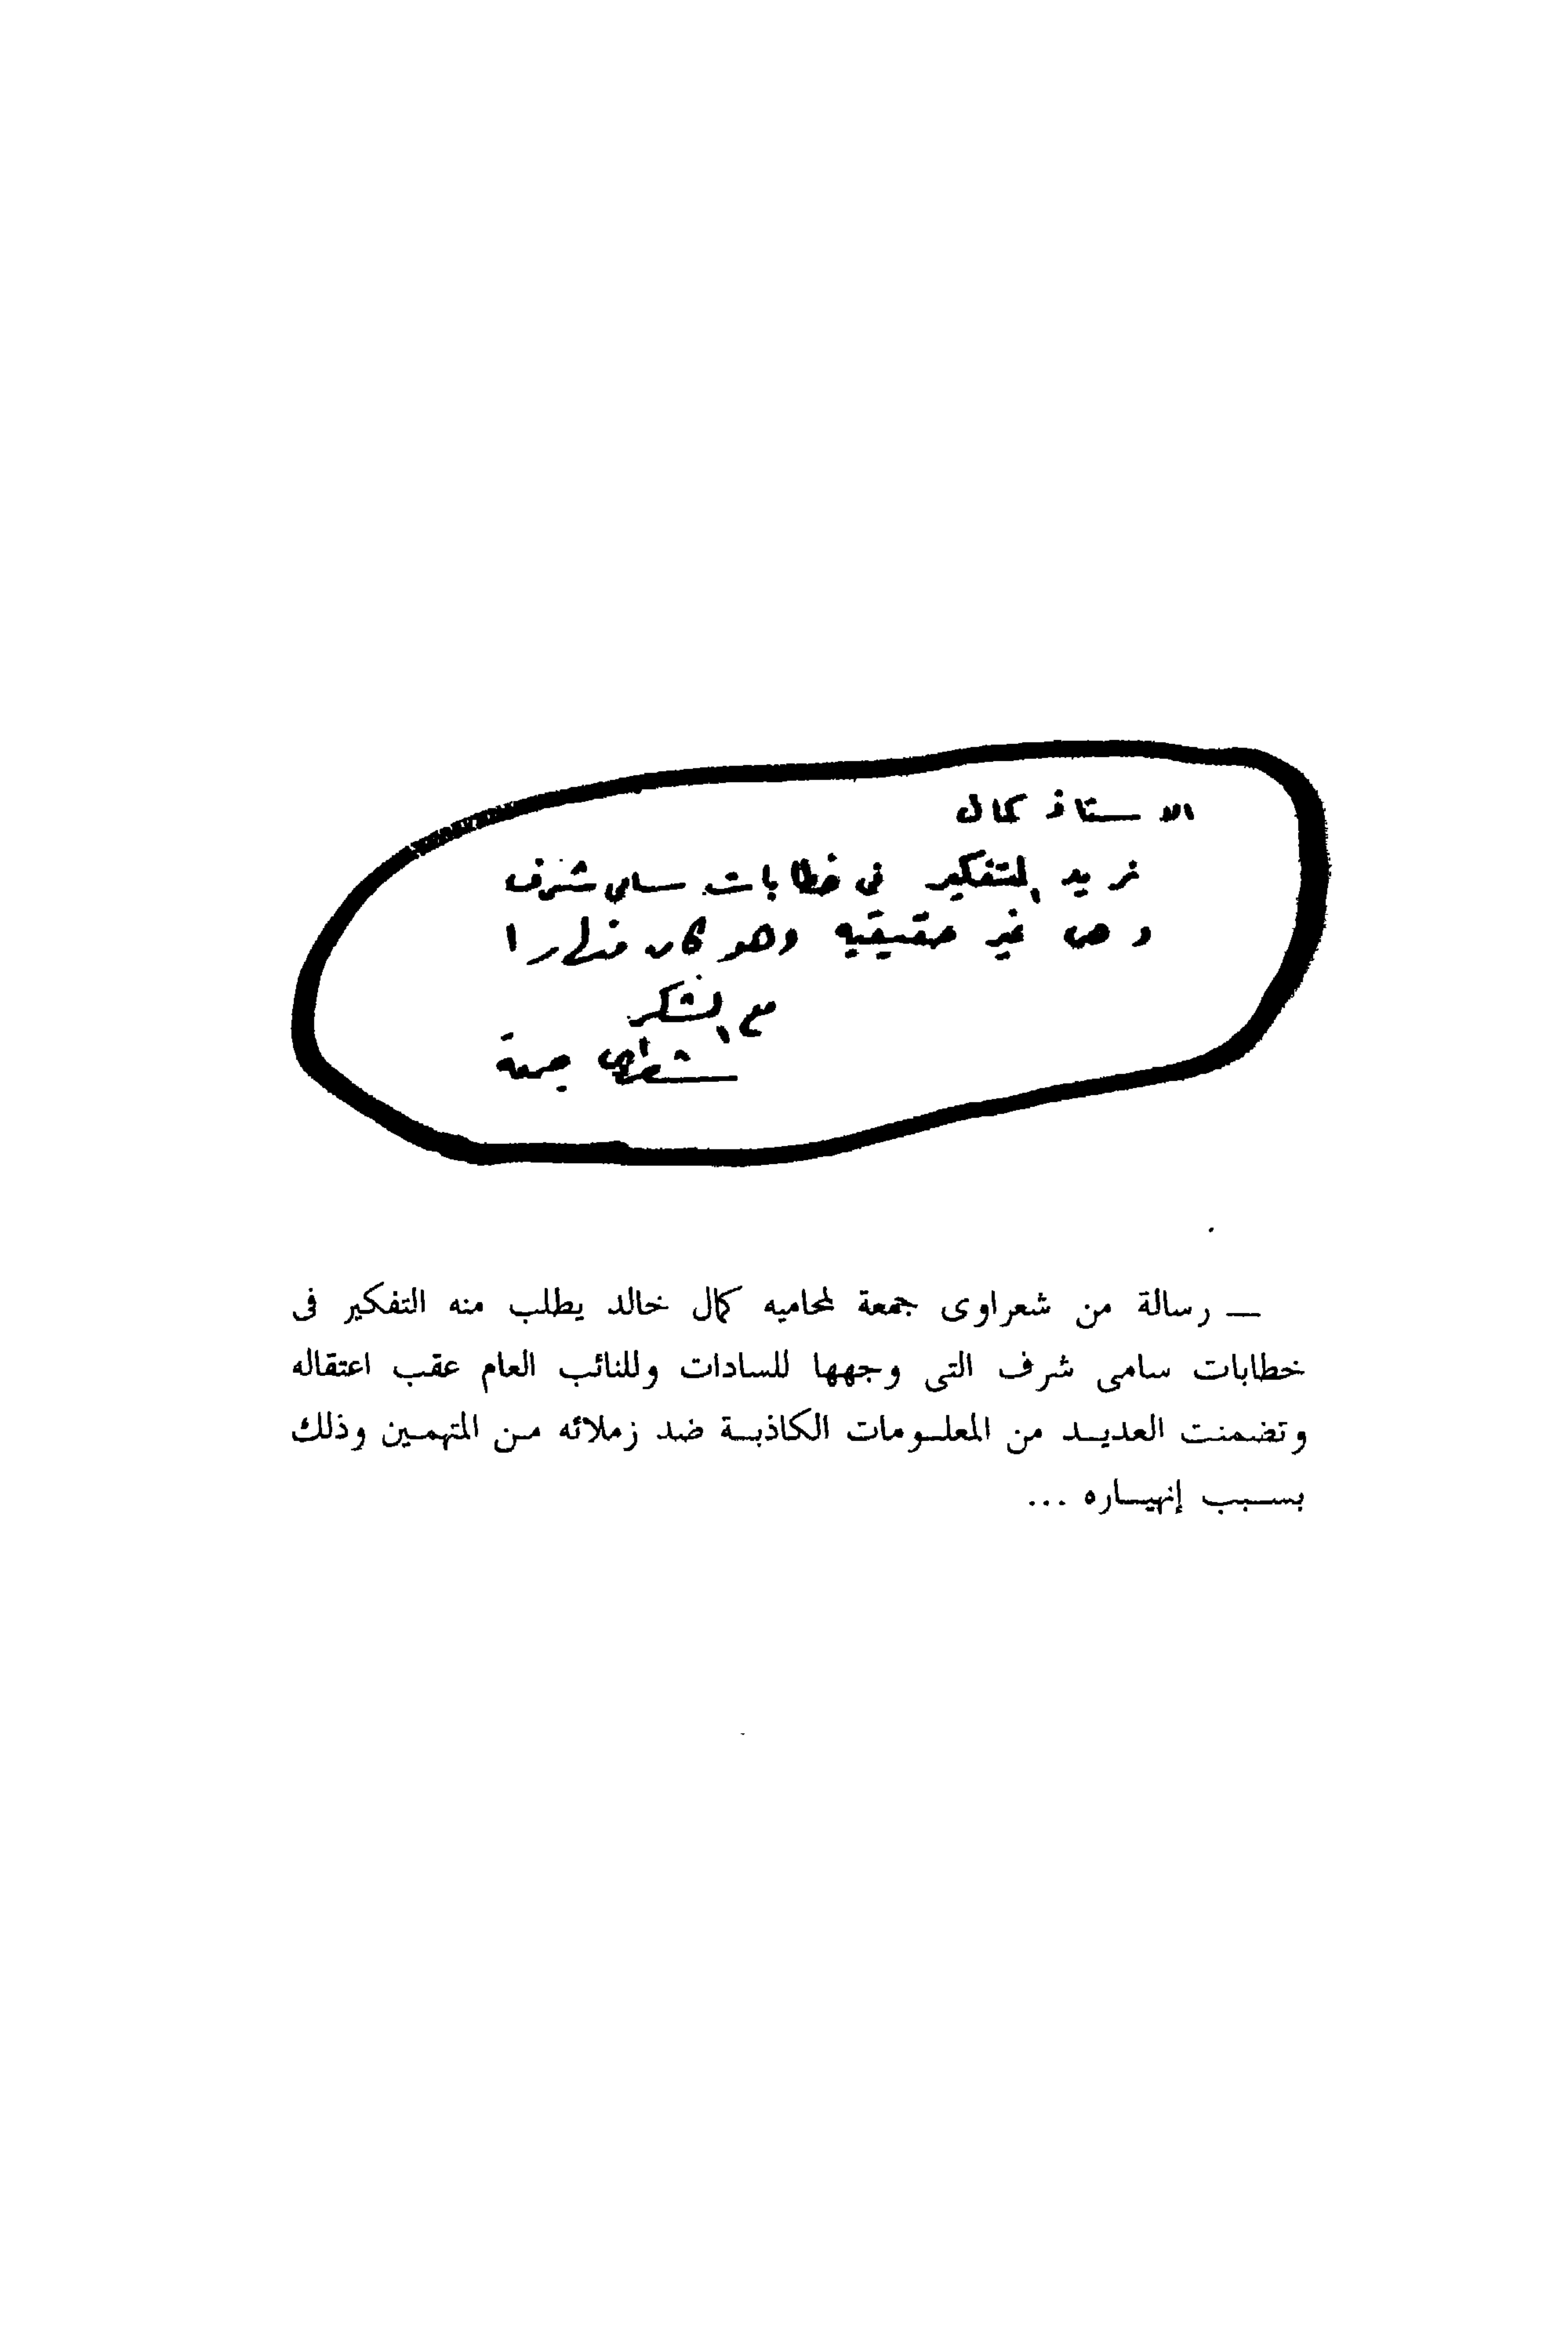 الاستاذ كمال
نريد التفكير فى خطابات سامى شرف
وهى غير حقيقيه وهو كان منهارا
مع الشكر
شعراوى جمعة
— رسالة من شعراوى جمعة لمحاميه كمال خالد يطلب منه التفكير فى
خطابات سامى شرف التى وجهها للسادات وللنائب العام عقب اعتقاله
وتضمنت العديـد من المعلـومات الكاذبـة ضد زملائه مـن المتهمـين وذلك
بسـبب إنهيـاره ...